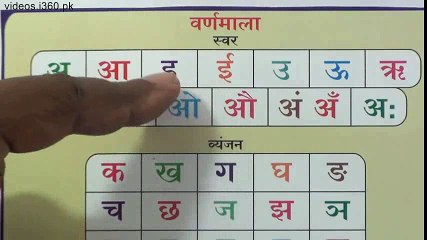 videos.i360.pk
वर्णमाला
स्वर
अ आ इ ई उ ऊ ऋ
ओ औ अं अँ अः
व्यंजन
क ख ग घ ङ
च छ ज झ ञ